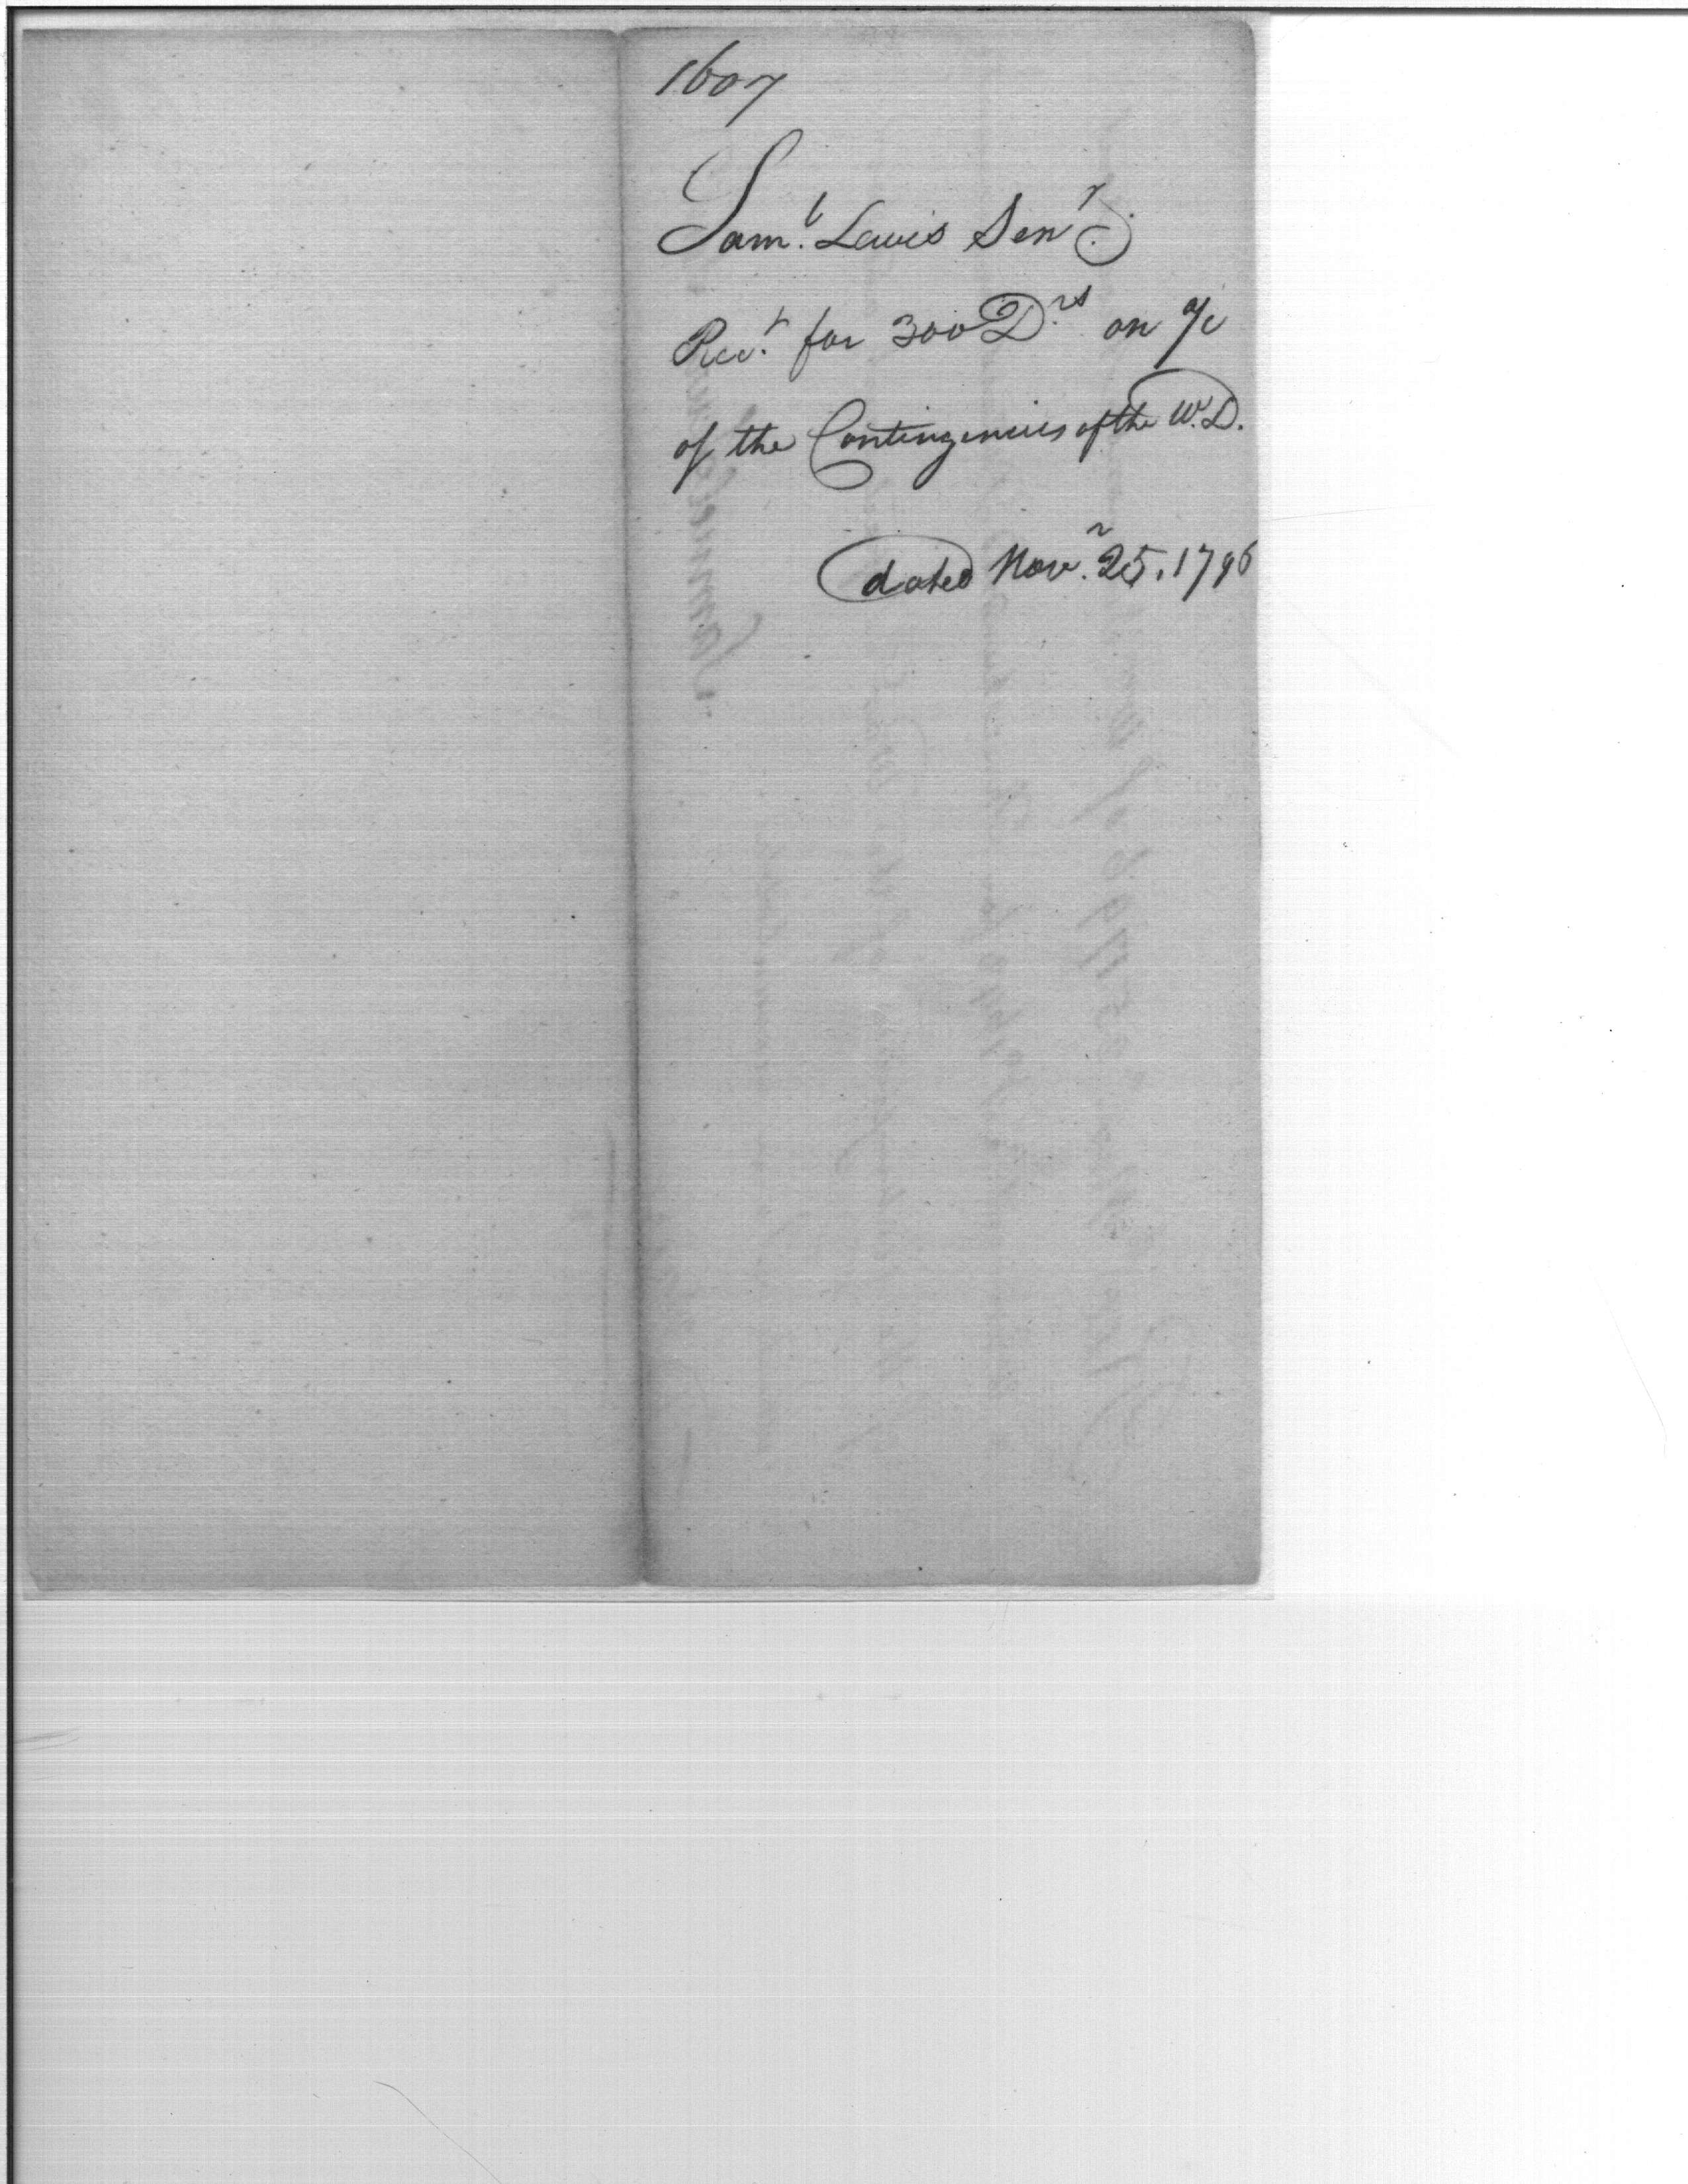 1607
Saml. Lewis Senr.
Rect. for 300 Drs on a/c
of the Contingencies of the W.D.
dated Novr. 25, 1796